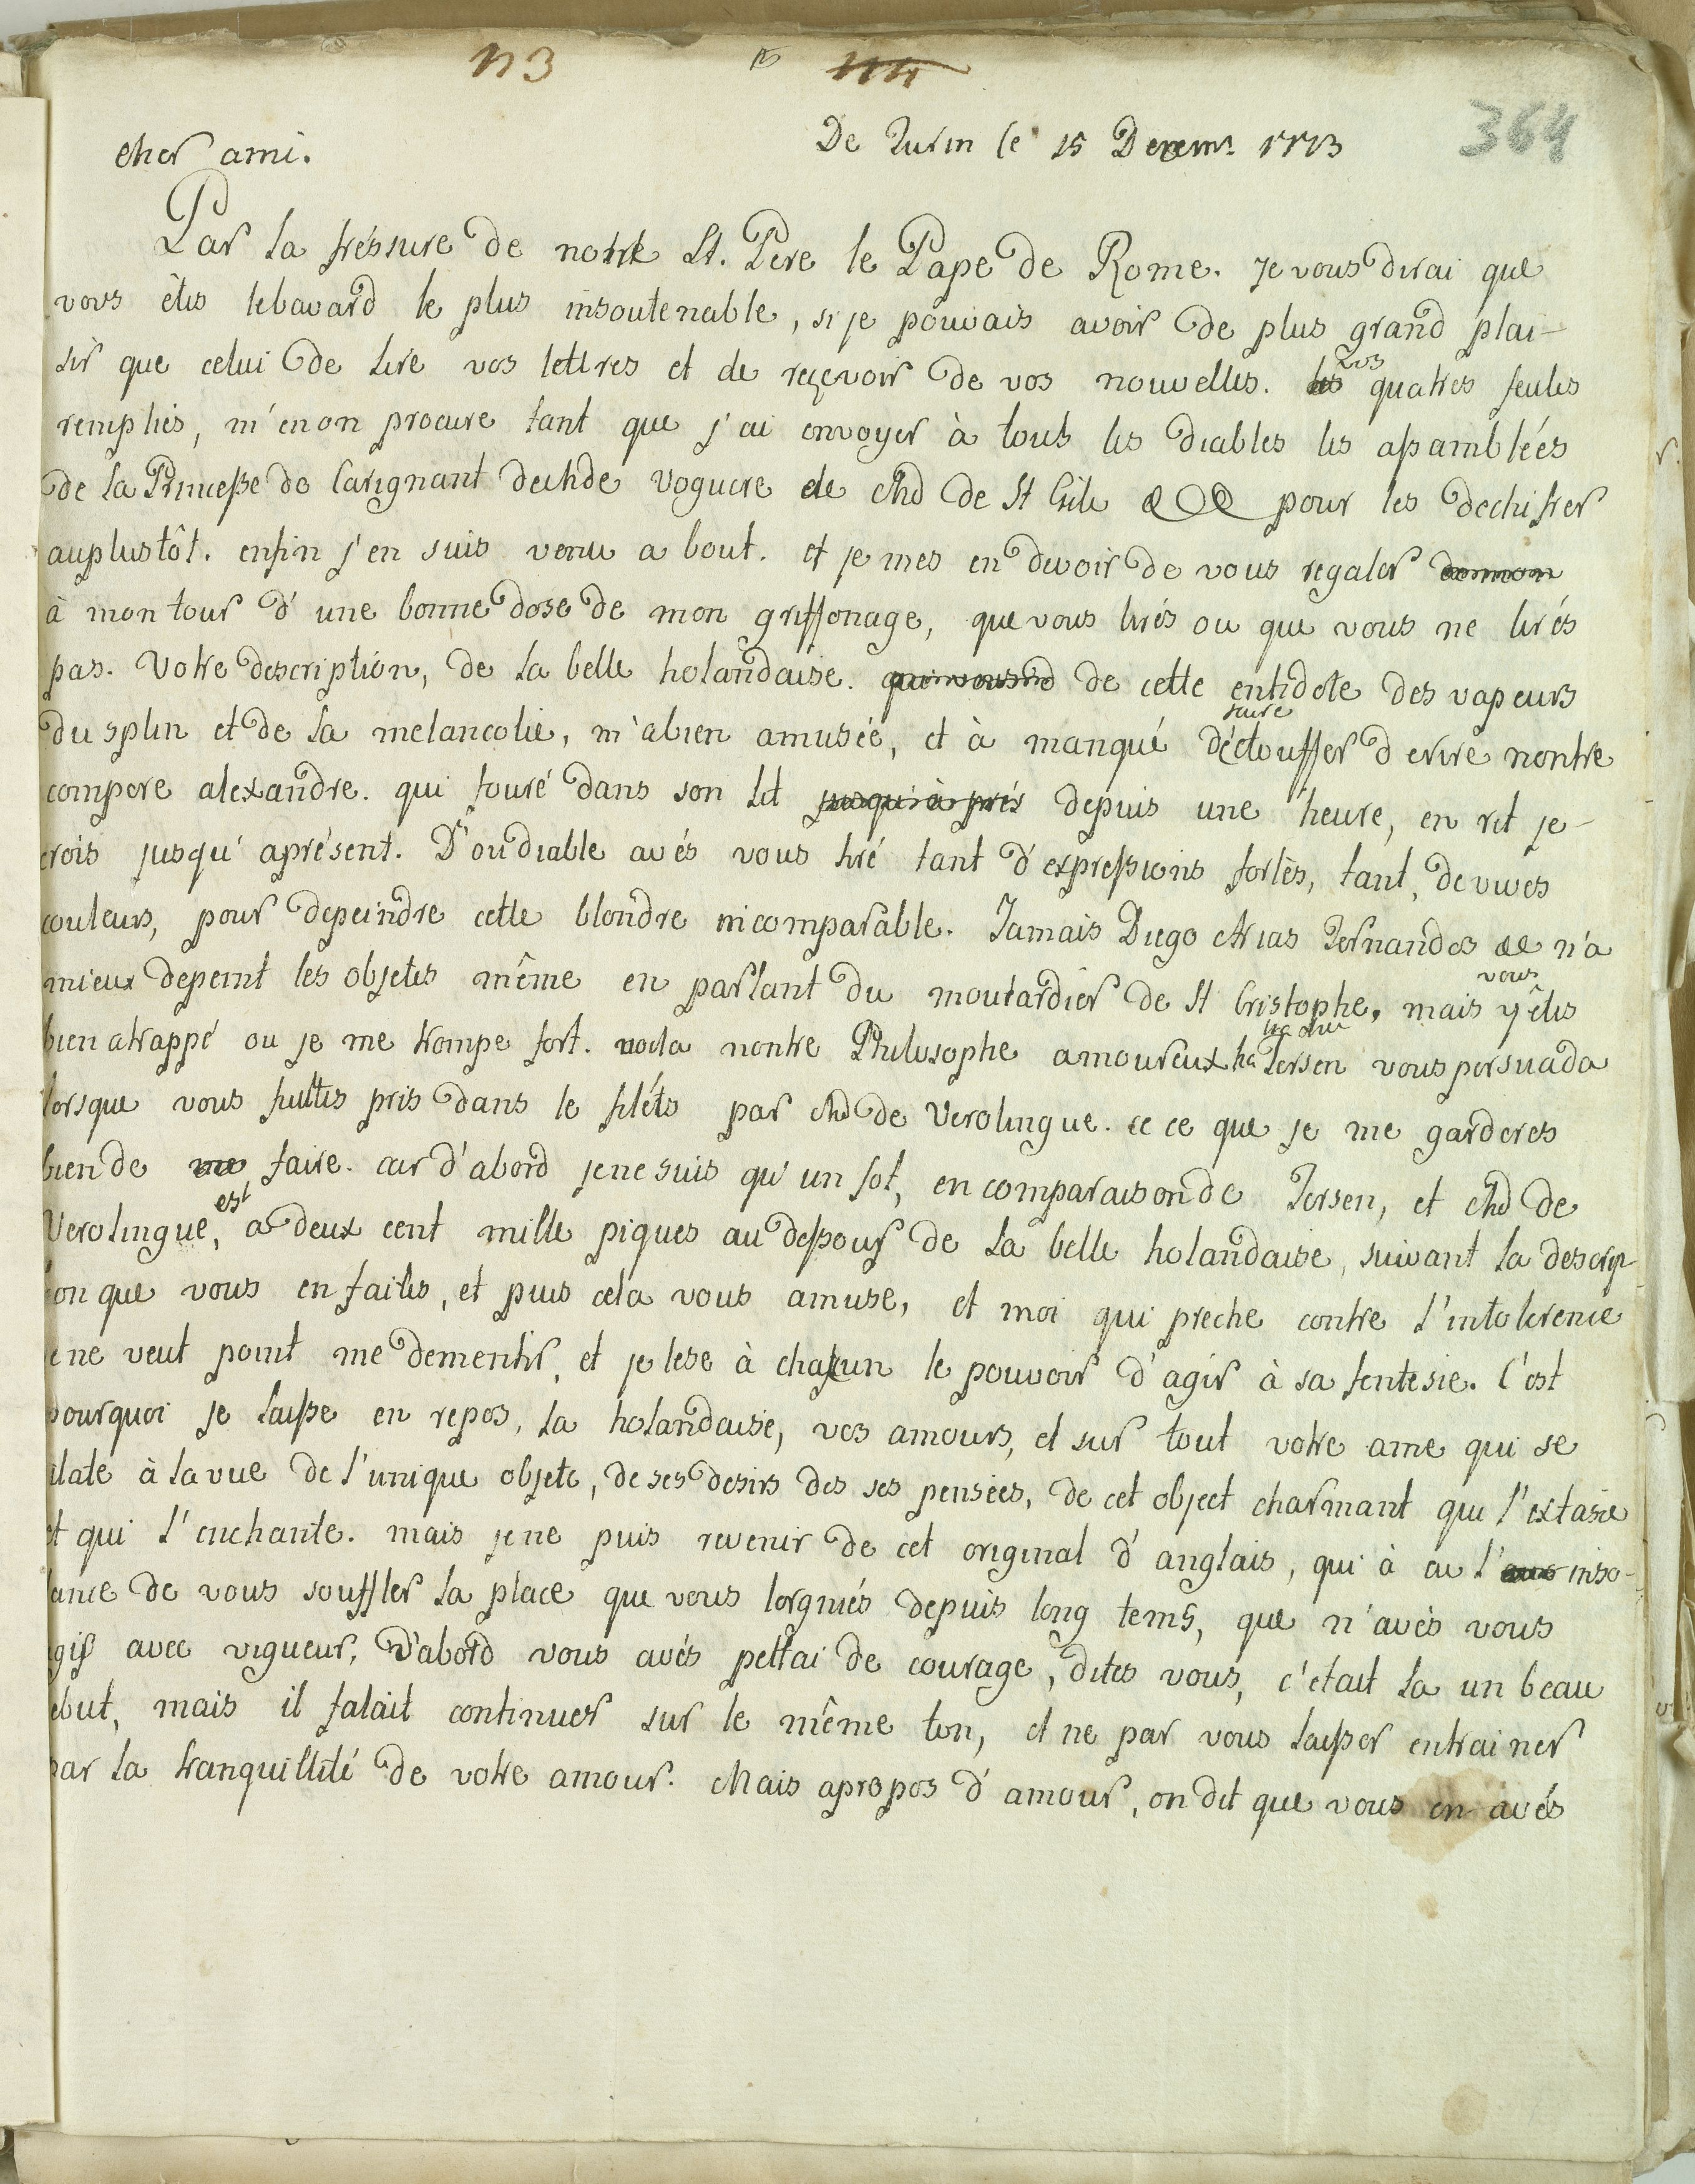 n3 n4
364
De Turin le 15 Decemr. 1773
cher ami.
Par la fréssure de notre St. Pere le Pape de Rome. Je vous dirai que
vous êtes lebavard le plus insoutenable, si je pouvais avoir de plus grand plai-
sir que celui de lire vos lettres et de reçevoir de vos nouvelles. les vos quatres feules
remplies, m'enon procure tant que j'ai envoyer à tous les diables les assamblées
de la Princesse de Carignant de Md de Voguere de Md de St Gile &&& pour les dechifrer
auplustôt. enfin j'en suis venu a bout. et je mes en devoir de vous regaler de mon
à mon tour d'une bonne dose de mon griffonage, que vous lirés ou que vous ne lirés
pas. Votre description, de la belle holandaise. que vous de cette entidote des vapeurs
du splin et de la melancolie, m'abien amusée, et à manqué faire d'éctouffer d erire nontre
compere alexandre. qui fouré dans son lit jusqu'à prés depuis une heure, en rit je
crois jusqu' aprésent. D'ou diable avés vous tiré tant d'expressions fortes, tant, de vives
couleurs, pour depeindre cette blondre incomparable. Jamais Diego Arias Fernandes && n'a
mieux depeint les objetes même en parlant du moutardier de St Cristophe, mais vous y êtes
bien atrappé ou je me trompe fort. voila nontre Philosophe amoureux Fersen vous persuada
lorsque vous futtes pris dans le filéts par Md de Verolingue. ce ce que je me garderes
bien de me faire. car d'abord je ne suis qu'un sot, en comparaison de Fersen, et Md de
Verolingue, est a deux cent mille piques au dessous de la belle holandaise, suivant la descrip-
ion que vous en faites, et puis cela vous amuse, et moi qui preche contre l'intolerence
e ne veut point me dementir, et je lese à chacun le pouvoir d'agir à sa fentesie. C'est
pourquoi je laisse en repos, la holandaise, vos amours, et sur tout votre ame qui se
ilate à la vue de l'unique objete, de ses desirs des ses pensées, de cet object charmant que l'extasie
et qui l'enchante. mais je ne puis revenir de cet original d'anglais, qui à eu l' inso-
lance de vous souffler la place que vous lorgniés depuis long tems, que n'avés vous
gis avec vigueur, d'abord vous avés pettai de courage, dites vous, c'etait la un beau
ebut, mais il falait continuer sur le même ton, et ne par vous laisser entrainer
par la tranquillité de votre amour. Mais apropos d'amour, on dit que vous en avés